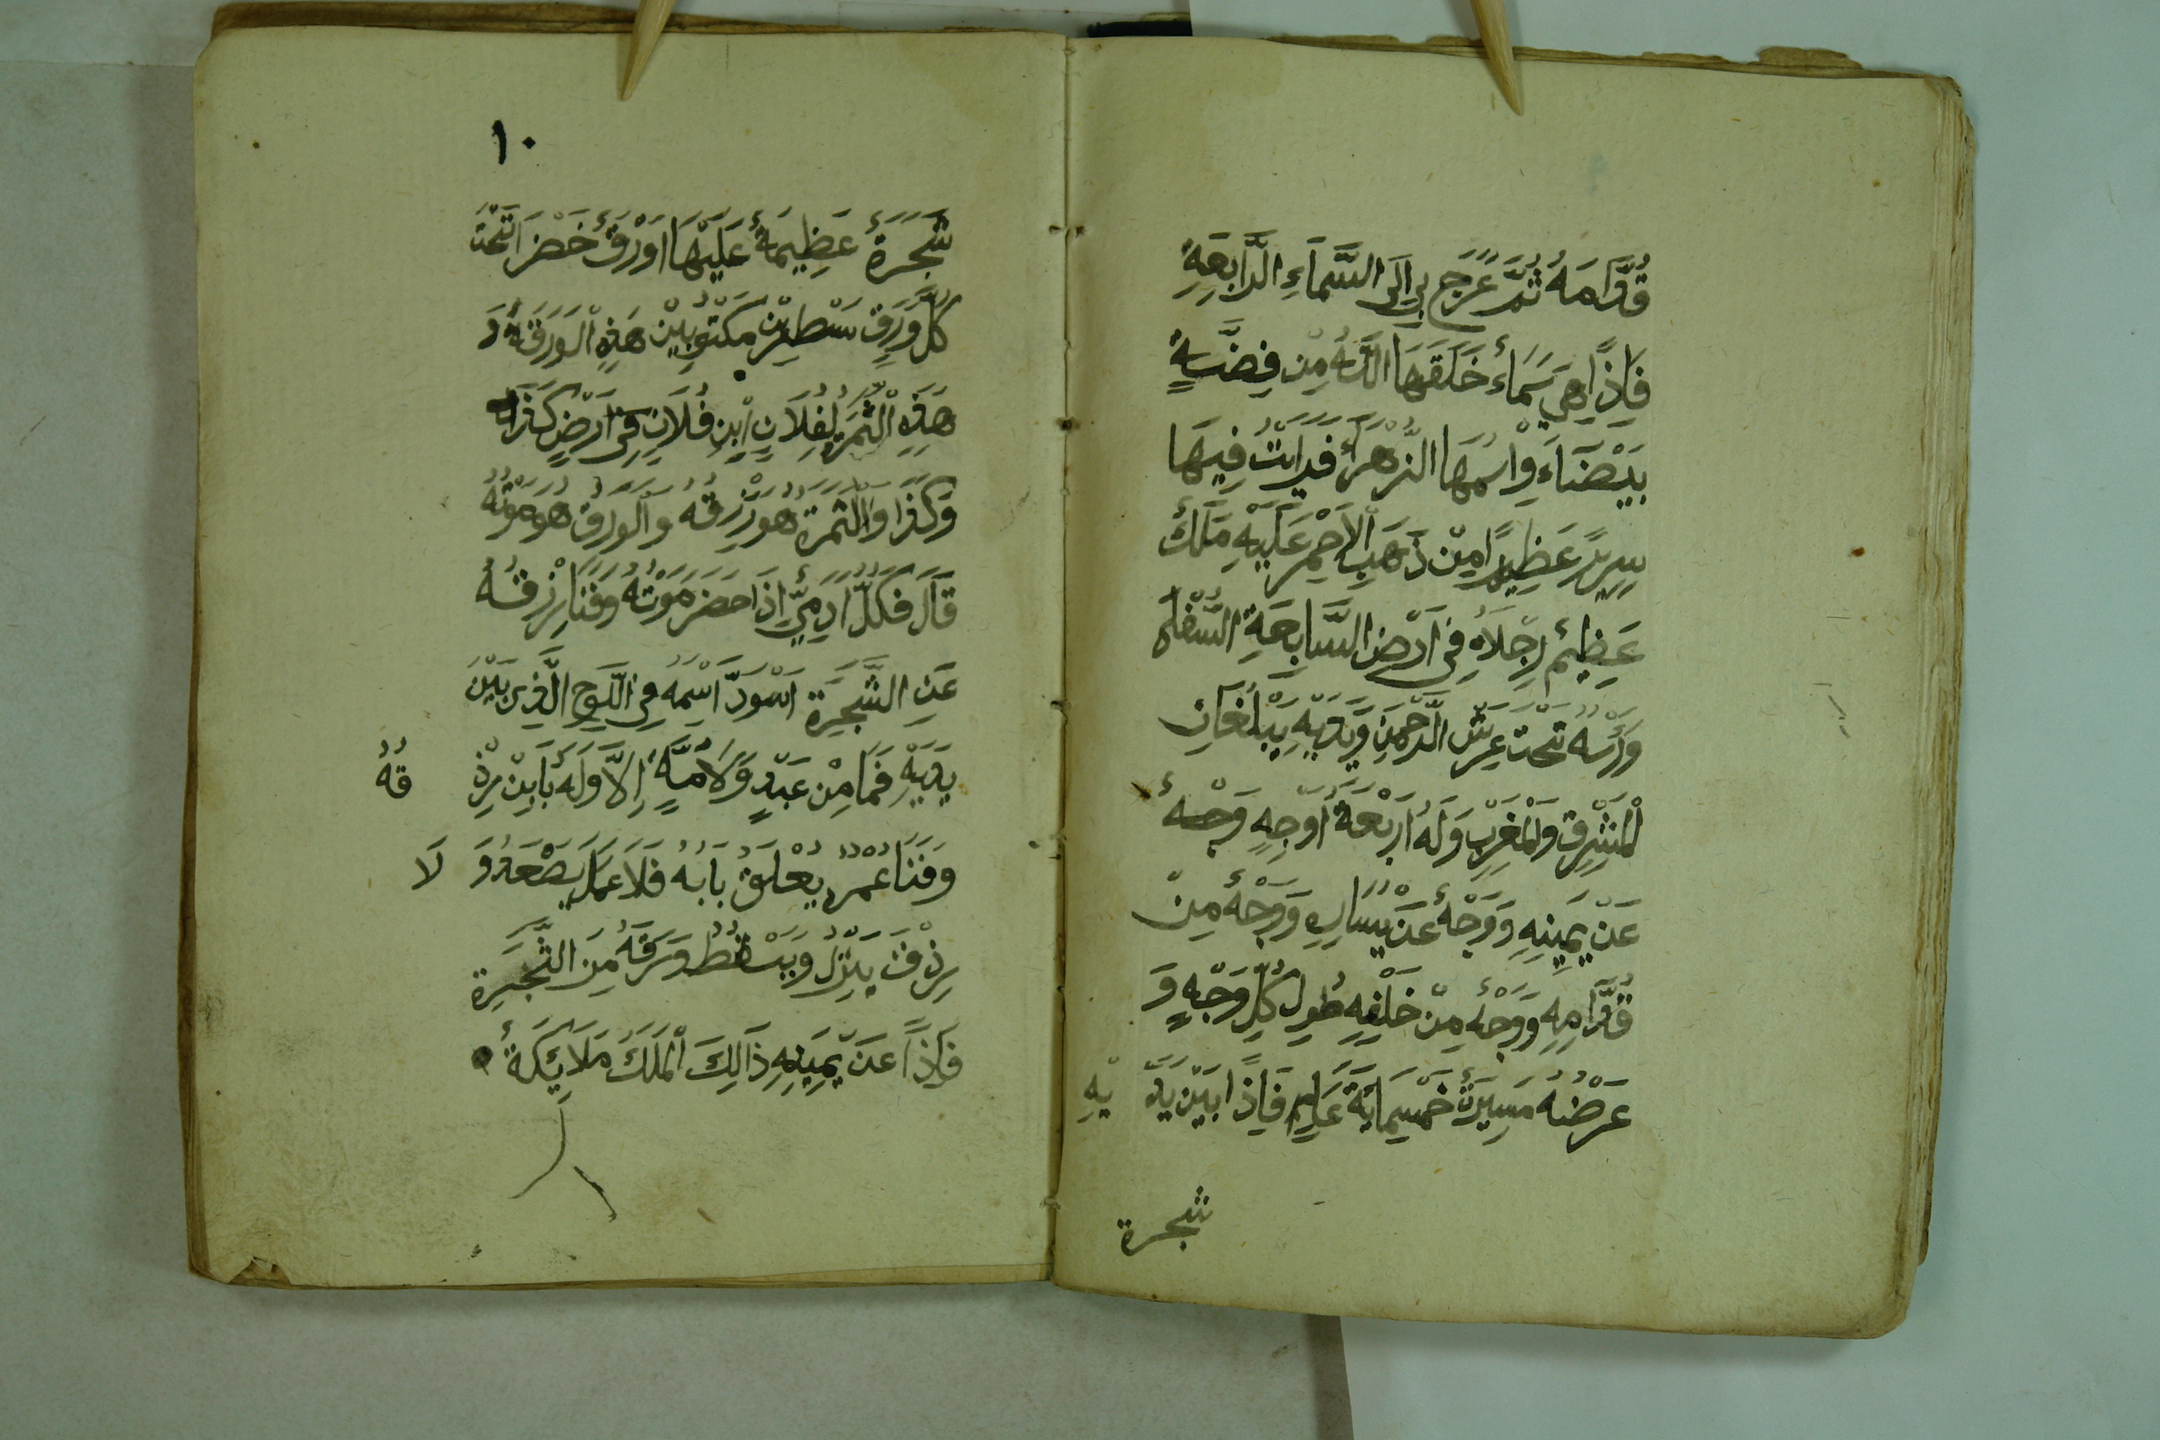 قُدَّامَهُ ثُمَّ عُرَجَ بِي اِلَى السَّمَاءِ الرَّابِعَةِ
فَاِذًا هِيَ سَمَاءٌ خَلَقَهَا اللّٰهُ مِنْ فِضَّةٍ
بَيْضَآءَ وِاسْمُهَا الزُّهْرَةُ فَرَاَيْتُ فِيهَا
سِرِيرً عَظِيمًا مِنْ ذَهَبِ الاَحْمِرِ عَلَيْهِ مَلَكٌ
عَظِيمٌ رِجْلَاهُ فِي اَرْضِ السَّابِعَةِ السُّفْلَى
وَرَاْسُهُ تَحْتَ عَرْشِ الرَّحْمَنِ وَيَدَيْهِ يَبْلُغَانِ
الْمَشْرِقِ وَالْمَغْرِبِ وَلَهُ اَرْبَعَةُ اَوْجِهٍ وَجْهٌ
عَنْ يَمِينِهِ وَوَجْهٌ عَنْ يَسَارِهِ وَوَجْهٌ مِنْ
قُدَّامِهِ وَوَجْهٌ مِنْ خَلْفِهِ طُولُ كُلِّ وَجْهٍ وَ
عَرْضُهُ مَسِيرَةُ خَمْسِمَايَةَ عَامٍ فَاِذًا بَيْنَ يَدَ يْهِ
شجرة
١٠
شَجَرَةٌ عَظِيمَةٌ عَلَيْهَا اَوْرَقٌ خَضْرَا تَحْتَ
كُلِّ وَرَقٍ سَطْرَيْنِ مَكْتُوبَيْنِ هَذِهِ الْوَرَقَةُ وَ
هَذِهِ الثَّمْرَةُ لِفُلَانِ ابْنِ فُلَانٍ فِي اَرْضِ كَذَا
وَكَذَا وَالثَّمَرَةُ هُوَ رِزْقُهُ وَالْوَرَقُ هُوَ مَوْتُهُ
قَالَ فَكُلُّ اَدَمِيٍّ اِذَا حَضَرَ مَوْتُهُ وَفَنَا رِزْقُهُ
عَنِ الشَّجَرَةِ اَسْوَدَّ اسْمُهُ فِي اللَّوحِ الَّذِي بَيْنَ
يَدَيْهِ فَمَا مِنْ عَبْدٍ وَلَا اُمَّةٍ اِلَّا وَلَهُ بَابِيْنَ رِزْ قُهُ
وَفَنَا عُمْرُهُ يُغْلَقُ بَابُهُ فَلَا عَمَلَ يَصْعَدُ وَ لَا
رِزْقَ يَنْزِلُ وَيَسْقُطُ وَرَقَهُ مِنَ الشَّجَرَةِ
فَاِذًا عَنْ يَمِينِهِ ذَالِكَ الْمَلَكُ مَلَايِكَةٌ